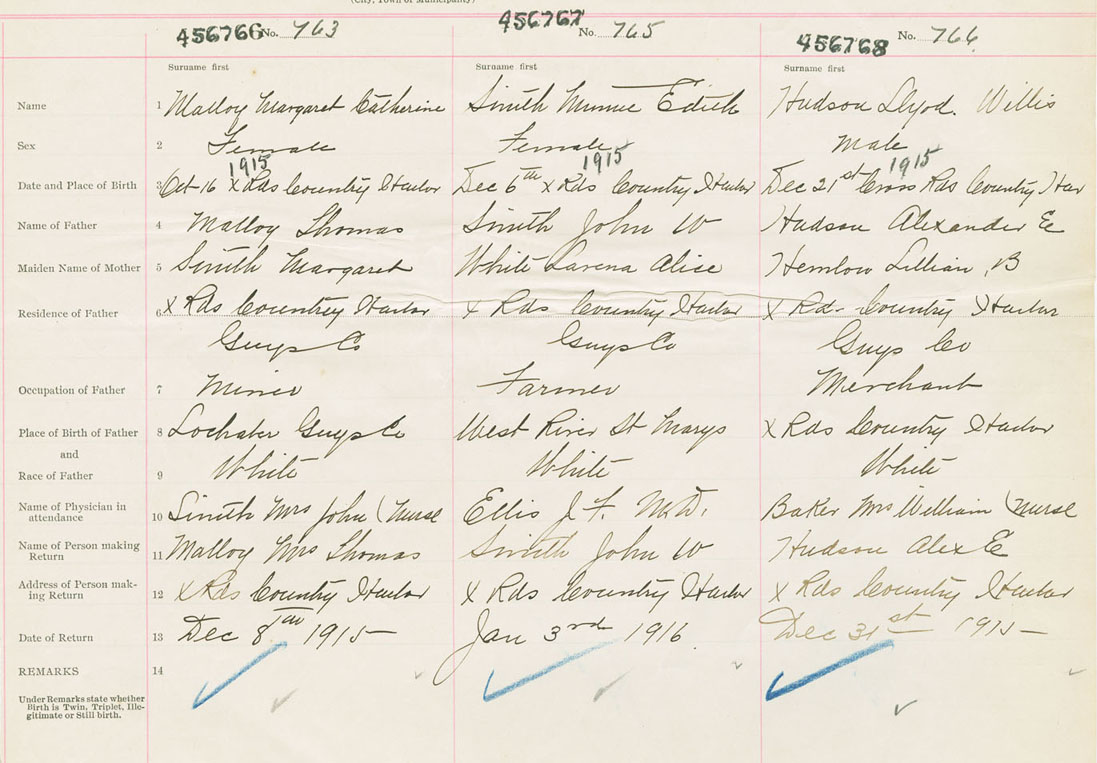 (City, Town or Municipality)
456766 No. 763 456767 No. 765 456768 No. 766
Surname first Surname first Surname first
Name 1 Malloy Margaret Catherine Smith Minnie Edith Hudson Llyod. Willis
Sex 2 Female Female Male
1915 1915 1915
Date and Place of Birth 3 Oct 16 X Rds Country Harbor Dec 6th X Rds Country Harbor Dec 21st Cross Rds Country Har
Name of Father 4 Malloy Thomas Smith John W Hudson Alexander E
Maiden Name of Mother 5 Smith Margaret White Larena Alice Hemlow Lillian B
Residence of Father 6 X Rds Country Harbor X Rds Country Harbor X Rds Country Harbor
Guys Co Guys Co Guys Co
Occupation of Father 7 Miner Farmer Merchant
Place of Birth of Father 8 Lochaber Guys Co West River St Marys X Rds Country Harbor
and
Race of Father 9 White White White
Name of Physician in
attendance 10 Smith Mrs John (Nurse Ellis J. F. M.D. Baker Mrs William (Nurse
Name of Person making
Return 11 Malloy Mrs Thomas Smith John W Hudson Alex E
Address of Person mak-
ing Return 12 X Rds Country Harbor X Rds Country Harbor X Rds Country Harbor
Date of Return 13 Dec 8th 1915 Jan 3rd 1916 Dec 31st 1915
REMARKS 14
Under Remarks state whether
Birth is Twin, Triplet, Ille-
gitimate or Still birth.